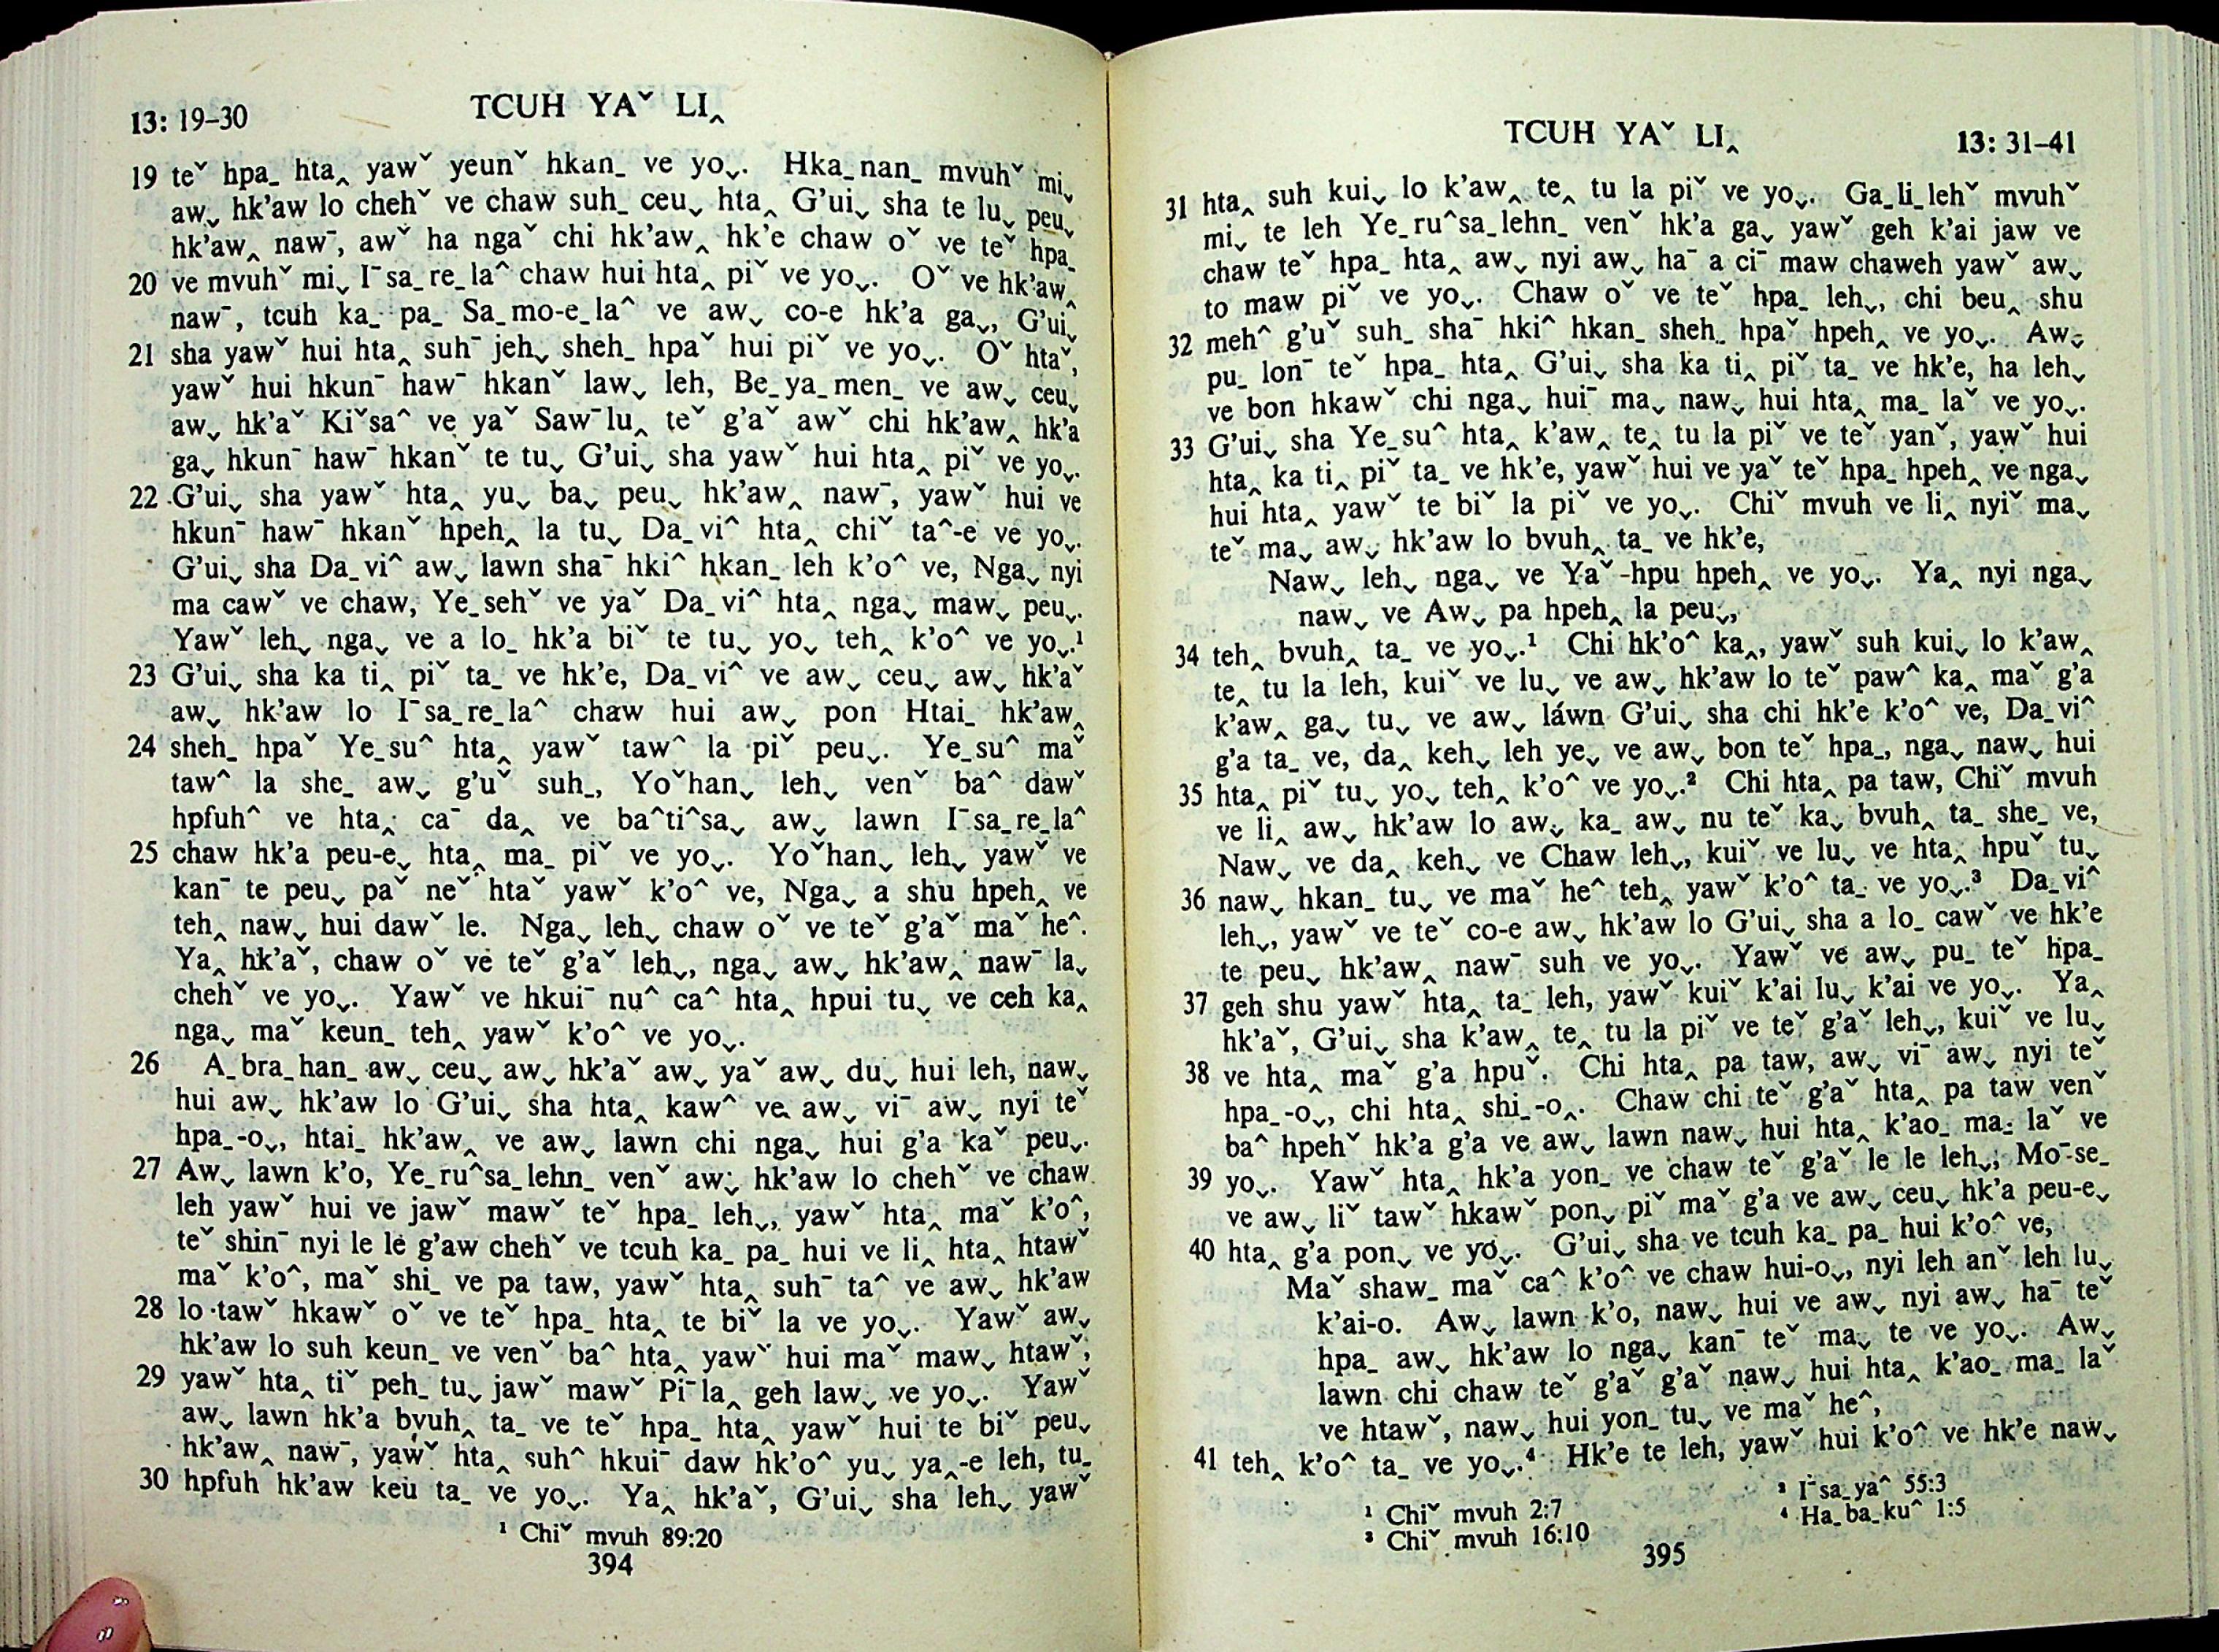 13: 19–30
TCUH YAˇ LI‸
19 teˇ hpaˍ hta‸ yawˇ yeunˇ hkanˍ ve yoˬ. Hkaˍnanˍ mvuhˇ miˬ
awˬ hk’aw lo chehˇ ve chaw suhˍ ceuˬ hta‸ G’uiˬ sha te luˬ peuˬ
hk’aw‸ nawˉ, awˇ ha ngaˇ chi hk’aw‸ hk’e chaw oˇ ve teˇ hpaˍ
20 ve mvuhˇ miˬ Iˉsaˍreˍla^ chaw hui hta‸ piˇ ve yoˬ. Oˇ ve hk’aw‸
nawˉ, tcuh kaˍ paˍ Saˍmo-eˍla^ ve awˬ co-e hk’a gaˬ, G’uiˬ
21 sha yawˇ hui hta‸ suhˉ jehˬ shehˍ hpaˇ hui piˇ ve yoˬ. Oˇ htaˇ,
yawˇ hui hkunˉ hawˉ hkanˇ lawˬ leh, Beˍyaˍmenˍ ve awˬ ceuˬ
awˬ hk’aˇ Kiˇsa^ ve yaˇ Sawˉlu‸ teˇ g’aˇ awˇ chi hk’aw‸ hk’a
gaˬ hkunˉ hawˉ hkanˇ te tuˬ G’uiˬ sha yawˇ hui hta‸ piˇ ve yoˬ.
22 G’uiˬ sha yawˇ hta‸ yuˬ baˬ peuˬ hk’aw‸ nawˉ, yawˇ hui ve
hkunˉ hawˉ hkanˇ hpeh‸ la tuˬ Daˍvi^ hta‸ chiˇ ta^-e ve yoˬ.
G’uiˬ sha Daˍvi^ awˬ lawn shaˉ hki^ hkanˍ leh k’o^ ve, Ngaˬ nyi
ma cawˇ ve chaw, Yeˍsehˇ ve yaˇ Daˍvi^ hta‸ ngaˬ mawˬ peuˬ.
Yawˇ lehˬ ngaˬ ve a loˍ hk’a biˇ te tuˬ yoˬ teh‸ k’o^ ve yoˬ.¹
23 G’uiˬ sha ka ti‸ piˇ taˍ ve hk’e, Daˍvi^ ve awˬ ceuˬ awˬ hk’aˇ
awˬ hk’aw lo Iˉsaˍreˍla^ chaw hui awˬ pon Htaiˍ hk’aw‸
24 shehˍ hpaˇ Yeˍsu^ hta‸ yawˇ taw^ la piˇ peuˬ. Yeˍsu^ maˇ
taw^ la sheˍ awˬ g’uˇ suhˍ, Yoˇhanˬ lehˬ venˇ ba^ dawˇ
hpfuh^ ve hta‸ caˉ da‸ ve ba^ti^saˬ awˬ lawn Iˉsaˍreˍla^
25 chaw hk’a peu-eˬ hta‸ maˍ piˇ ve yoˬ. Yoˇhanˬ lehˬ yawˇ ve
kanˉ te peuˬ paˇ neˇ htaˇ yawˇ k’o^ ve, Ngaˬ a shu hpeh‸ ve
teh‸ nawˬ hui dawˇ le. Ngaˬ lehˬ chaw oˇ ve teˇ g’aˇ maˇ he^.
Ya‸ hk’aˇ, chaw oˇ ve teˇ g’aˇ lehˬ, ngaˬ awˬ hk’aw‸ nawˉ laˬ
chehˇ ve yoˬ. Yawˇ ve hkuiˉ nu^ ca^ hta‸ hpui tuˬ ve ceh ka‸
ngaˬ maˇ keunˍ teh‸ yawˇ k’o^ ve yoˬ.
26 Aˍbraˍhanˍ awˬ ceuˬ awˬ hk’aˇ awˬ yaˇ awˬ duˬ hui leh, nawˬ
hui awˬ hk’aw lo G’uiˬ sha hta‸ kaw^ ve awˬ viˉ awˬ nyi teˇ
hpaˍ-oˬ, htaiˍ hk’aw‸ ve awˬ lawn chi ngaˬ hui g’a kaˇ peuˬ.
27 Awˬ lawn k’o, Yeˍru^saˍlehnˍ venˇ awˬ hk’aw lo chehˇ ve chaw
leh yawˇ hui ve jawˇ mawˇ teˇ hpaˍ lehˬ, yawˇ hta‸ maˇ k’o^,
teˇ shinˉ nyi le le g’aw chehˇ ve tcuh kaˍ paˍ hui ve li‸ hta‸ htawˇ
maˇ k’o^, maˇ shiˍ ve pa taw, yawˇ hta‸ suhˉ ta^ ve awˬ hk’aw
28 lo tawˇ hkawˇ oˇ ve teˇ hpaˍ hta‸ te biˇ la ve yoˬ. Yawˇ awˬ
hk’aw lo suh keunˍ ve venˇ ba^ hta‸ yawˇ hui maˇ mawˬ htawˇ,
29 yawˇ hta‸ tiˇ pehˍ tuˬ jawˇ mawˇ Piˉla‸ geh lawˬ ve yoˬ. Yawˇ
awˬ lawn hk’a bvuh‸ taˍ ve teˇ hpaˍ hta‸ yawˇ hui te biˇ peuˬ
hk’aw‸ nawˉ, yawˇ hta‸ suh^ hkuiˉ daw hk’o^ yuˬ ya‸-e leh, tuˍ
30 hpfuh hk’aw keu taˍ ve yoˬ. Ya‸ hk’aˇ, G’uiˬ sha lehˬ yawˇ
¹ Chiˇ mvuh 89:20
394
TCUH YAˇ LI‸
13: 31–41
31 hta‸ suh kuiˬ lo k’aw‸ te‸ tu la piˇ ve yoˬ. Gaˍliˍlehˇ mvuhˇ
miˬ te leh Yeˍru^saˍlehnˍ venˇ hk’a gaˬ yawˇ geh k’ai jaw ve
chaw teˇ hpaˍ hta‸ awˬ nyi awˬ haˉ a ciˉ maw chaweh yawˇ awˬ
to maw piˇ ve yoˬ. Chaw oˇ ve teˇ hpaˍ lehˬ, chi beu‸ shu
32 meh^ g’uˇ suhˍ shaˉ hki^ hkanˍ shehˍ hpaˇ hpeh‸ ve yoˬ. Awˬ
puˍ lonˉ teˇ hpaˍ hta‸ G’uiˬ sha ka ti‸ piˇ taˍ ve hk’e, ha lehˬ
ve bon hkawˇ chi ngaˬ huiˉ maˬ nawˬ hui hta‸ maˍ laˇ ve yoˬ.
33 G’uiˬ sha Yeˍsu^ hta‸ k’aw‸ te‸ tu la piˇ ve teˇ yanˇ, yawˇ hui
hta‸ ka ti‸ piˇ taˍ ve hk’e, yawˇ hui ve yaˇ teˇ hpaˍ hpeh‸ ve ngaˬ
hui hta‸ yawˇ te biˇ la piˇ ve yoˬ. Chiˇ mvuh ve li‸ nyiˇ maˬ
teˇ maˬ awˬ hk’aw lo bvuh‸ taˍ ve hk’e,
Nawˬ lehˬ ngaˬ ve Yaˇ-hpu hpeh‸ ve yoˬ. Ya‸ nyi ngaˬ
nawˬ ve Awˬ pa hpeh‸ la peuˬ,
34 teh‸ bvuh‸ taˍ ve yoˬ.¹ Chi hk’o^ ka‸, yawˇ suh kuiˬ lo k’aw‸
te‸ tu la leh, kuiˇ ve luˬ ve awˬ hk’aw lo teˇ paw^ ka‸ maˇ g’a
k’aw‸ gaˬ tuˬ ve awˬ láwn G’uiˬ sha chi hk’e k’o^ ve, Daˍvi^
g’a taˍ ve, da‸ kehˬ leh yeˬ ve awˬ bon teˇ hpaˍ, ngaˬ nawˬ hui
35 hta‸ piˇ tuˬ yoˬ teh‸ k’o^ ve yoˬ.² Chi hta‸ pa taw, Chiˇ mvuh
ve li‸ awˬ hk’aw lo awˬ kaˍ awˬ nu teˇ kaˬ bvuh‸ taˍ sheˍ ve,
Nawˬ ve da‸ kehˬ ve Chaw lehˬ, kuiˇ ve luˬ ve hta‸ hpuˇ tuˬ
36 nawˬ hkanˍ tuˬ ve maˇ he^ teh‸ yawˇ k’o^ taˍ ve yoˬ.³ Daˍvi^
lehˬ, yawˇ ve teˇ co-e awˬ hk’aw lo G’uiˬ sha a loˍ cawˇ ve hk’e
te peuˬ hk’aw‸ nawˉ suh ve yoˬ. Yawˇ ve awˬ puˍ teˇ hpaˍ
37 geh shu yawˇ hta‸ taˍ leh, yawˇ kuiˇ k’ai luˬ k’ai ve yoˬ. Ya‸
hk’aˇ, G’uiˬ sha k’aw‸ te‸ tu la piˇ ve teˇ g’aˇ lehˬ, kuiˇ ve luˬ
38 ve hta‸ maˇ g’a hpuˇ. Chi hta‸ pa taw, awˬ viˉ awˬ nyi teˇ
hpaˍ-oˬ, chi hta‸ shiˍ-o‸. Chaw chi teˇ g’aˇ hta‸ pa taw venˇ
ba^ hpehˇ hk’a g’a ve awˬ lawn nawˬ hui hta‸ k’aoˍ maˍ laˇ ve
39 yoˬ. Yawˇ hta‸ hk’a yonˍ ve chaw teˇ g’aˇ le le lehˬ, Moˉseˍ
ve awˬ liˇ tawˇ hkawˇ ponˬ piˇ maˇ g’a ve awˬ ceuˬ hk’a peu-eˬ
40 hta‸ g’a ponˬ ve yoˬ. G’uiˬ sha ve tcuh kaˍ paˍ hui k’o^ ve,
Maˇ shawˍ maˇ ca^ k’o^ ve chaw hui-oˬ, nyi leh anˇ leh luˬ
k’ai-o. Awˬ lawn k’o, nawˬ hui ve awˬ nyi awˬ haˉ teˇ
hpaˍ awˬ hk’aw lo ngaˬ kanˉ teˇ maˬ te ve yoˬ. Awˬ
lawn chi chaw teˇ g’aˇ g’aˇ nawˬ hui hta‸ k’aoˍ maˍ laˇ
ve htawˇ, nawˬ hui yonˍ tuˬ ve maˇ he^,
41 teh‸ k’o^ taˍ ve yoˬ.⁴ Hk’e te leh, yawˇ hui k’o^ ve hk’e nawˬ
¹ Chiˇ mvuh 2:7
³ Chiˇ mvuh 16:10
² Iˉsaˍya^ 55:3
⁴ Haˍbaˍku^ 1:5
395